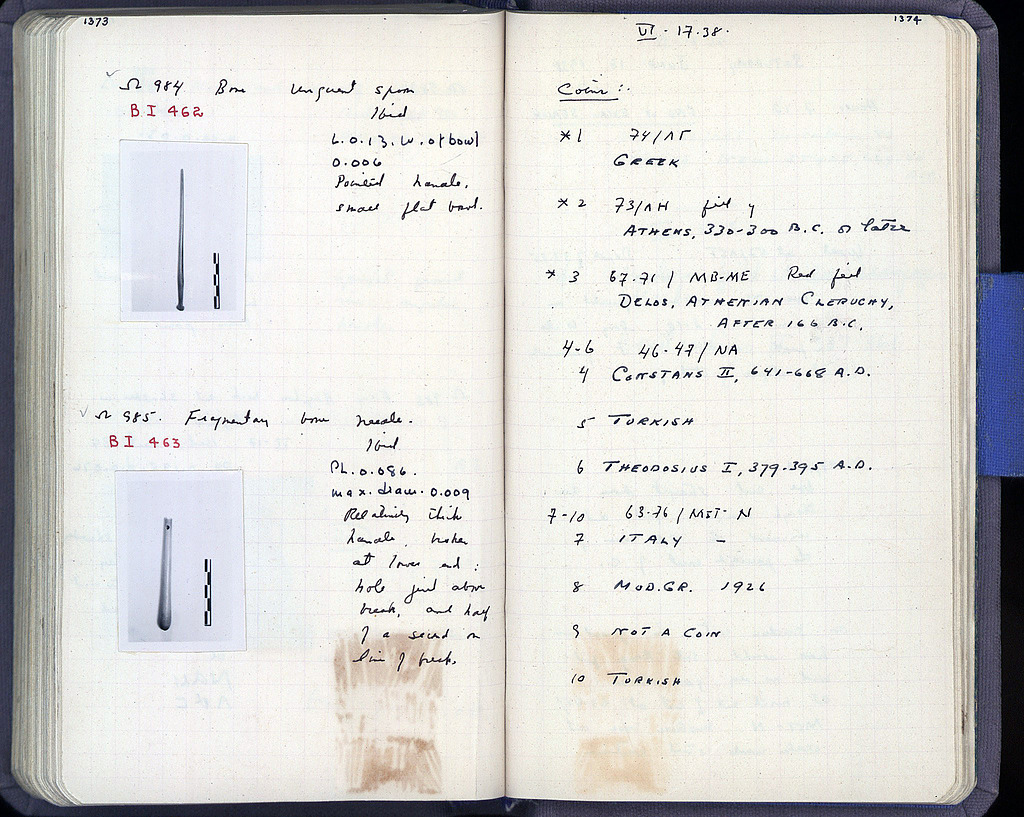 1373
Ω 984 Bone unguent spoon
BI 462
Ibid
L. 0.13, W. of bowl
0.006
Pointed handle,
small flat bowl.
Ω 985. Fragmentary bone needle.
BI 463
Ibid
PL. 0.086.
max. diam. 0.009
Relatively thick
handle, broken
at lower end:
hole just above
break, and half
of a second on
line of break.
1374
VI · 17.38.
Coins:
*1 74/ΛΓ
GREEK
*2 73/ΛΗ
ATHENS, 330-300 B.C. or later
*3 67-71/MB-ME Red fill
DELOS, ATHENIAN CLERUCHY,
AFTER 166 B.C.
4-6 46-47/NA
4 CONSTANS II, 641-668 A.D.
5 TURKISH
6 THEODOSIUS I, 379-395 A.D.
7-10 63-76/MΣT-N
7 ITALY -
8 MOD.GR. 1926
9 NOT A COIN
10 TURKISH